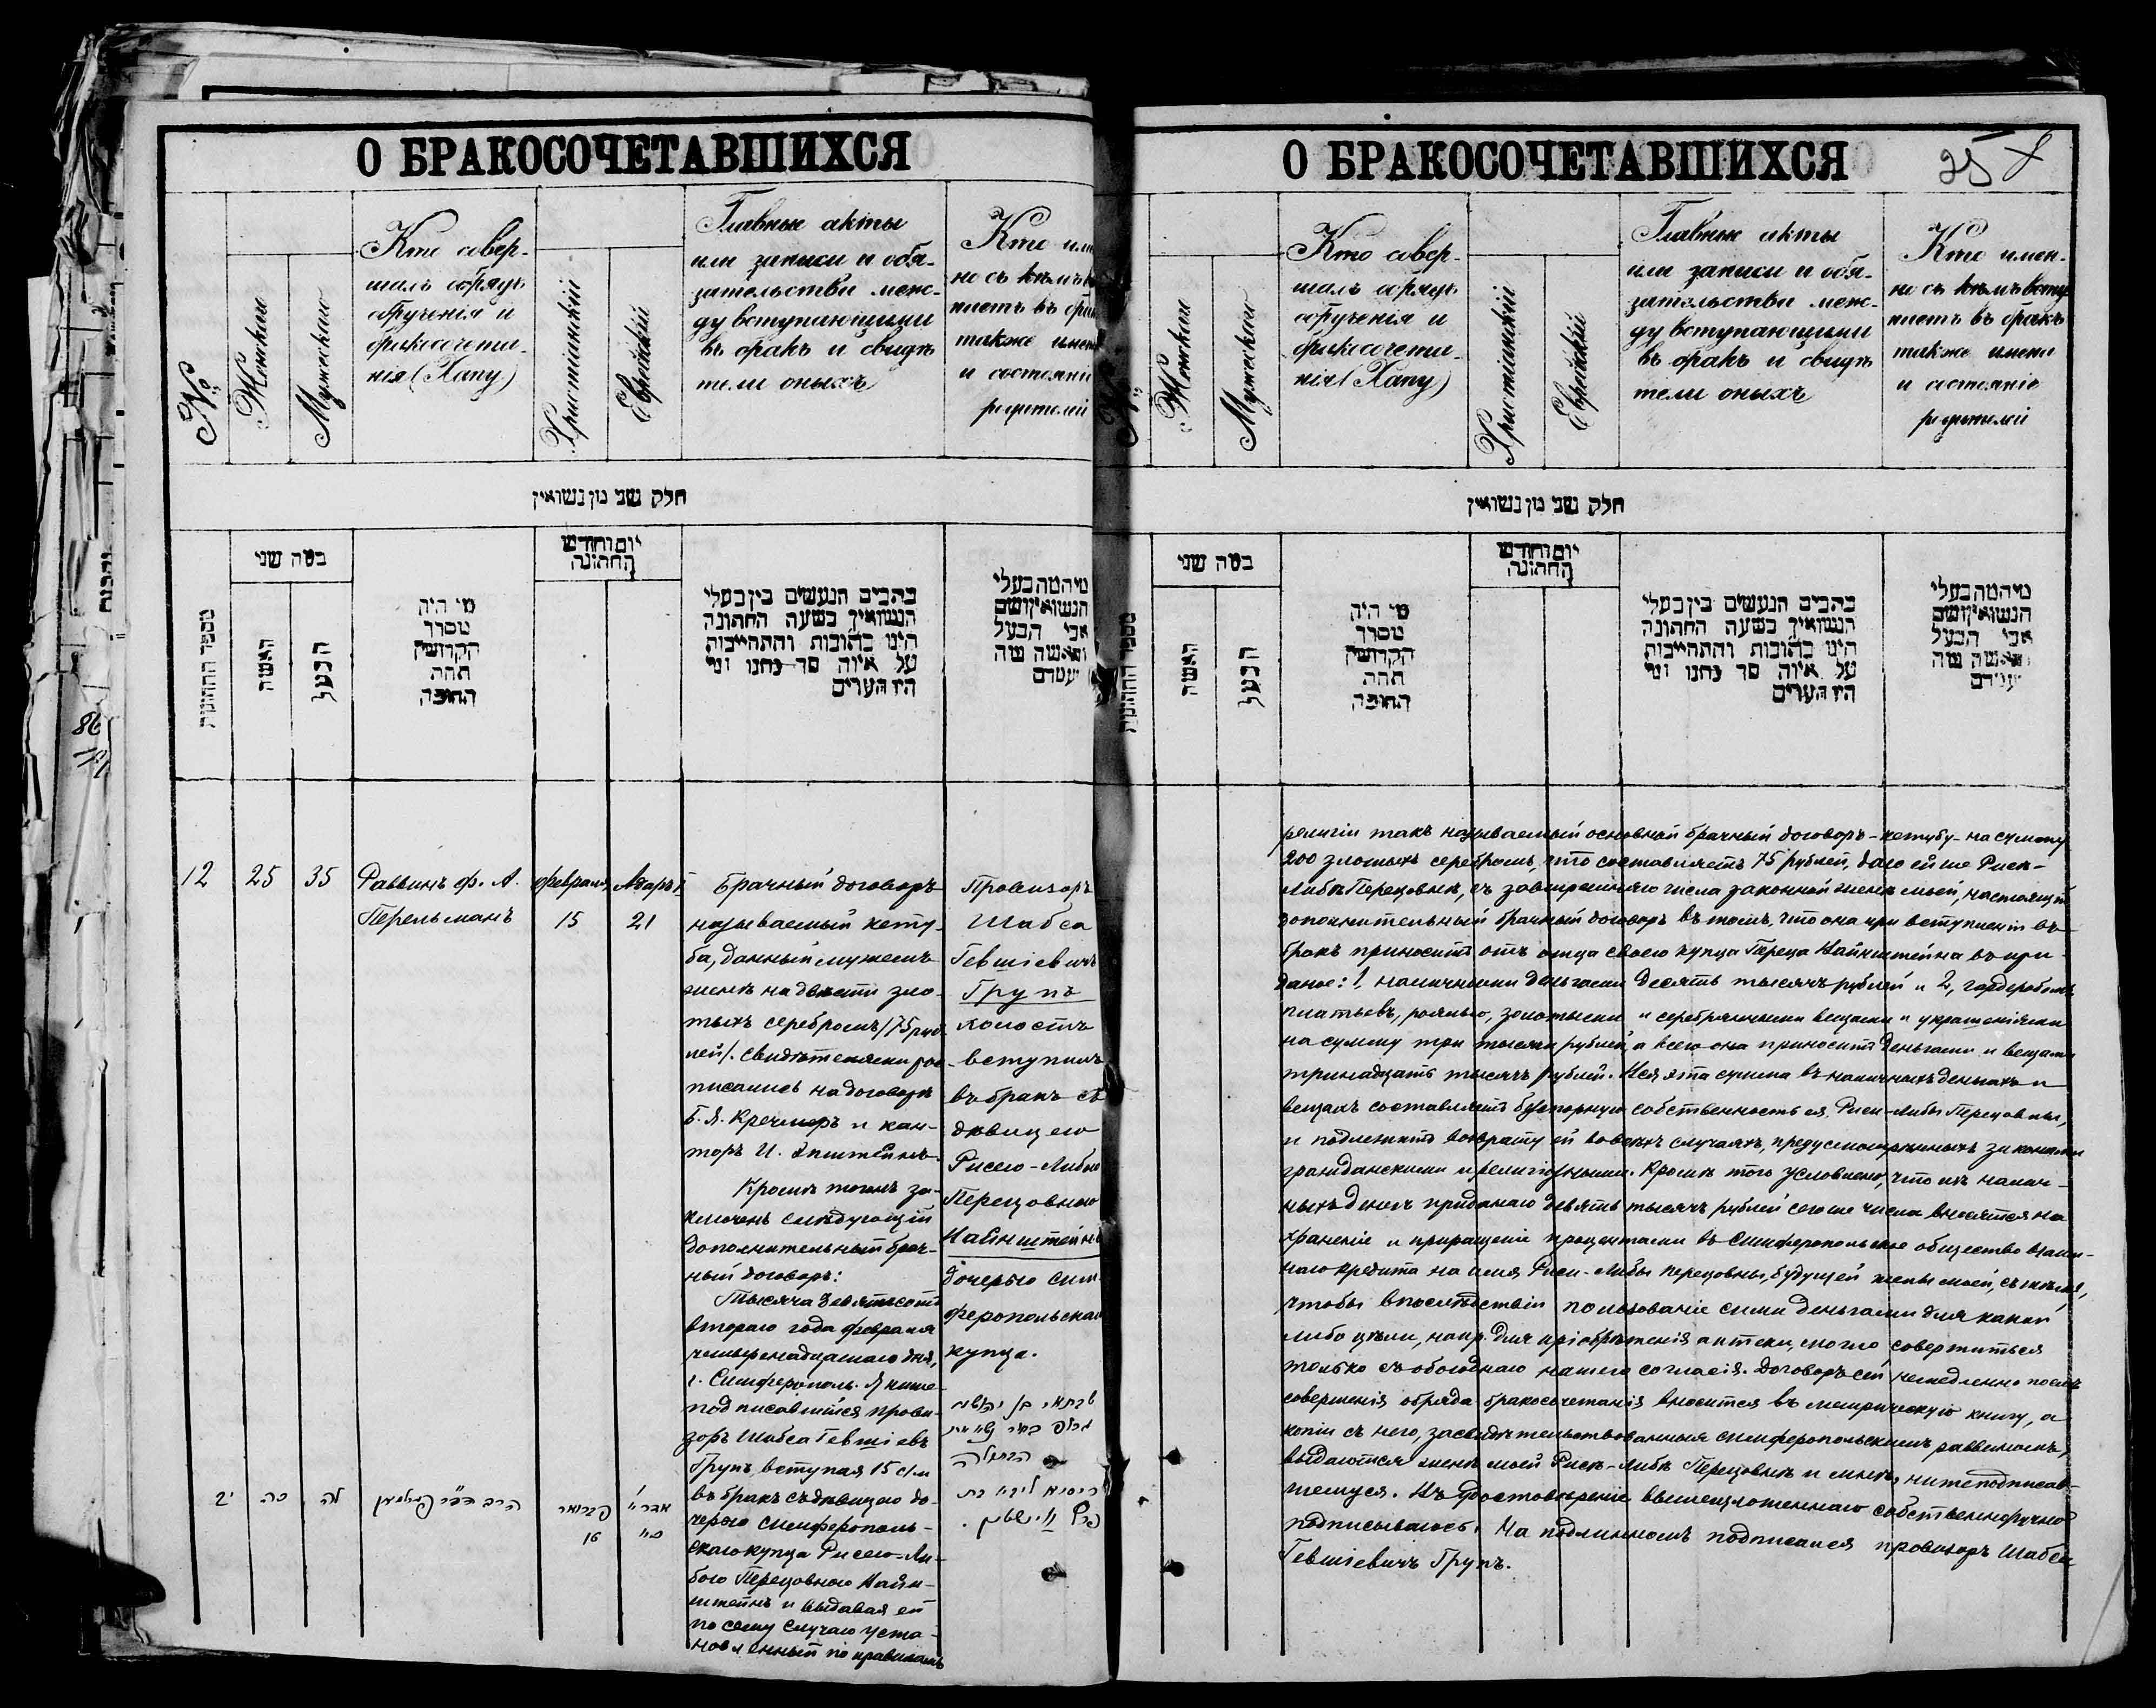 О БРАКОСОЧЕТАВШИХСЯ
№
Женскаго
Мужескаго
Кто совер-
шалъ обрядъ
обрученія и
бракосочета-
нія (Хапу)
Христіанскій
Еврейскій
Главные акты
или записи и обя-
зательства меж-
ду вступающими
въ бракъ и свидѣ
тели оныхъ
Кто имен
но съ кѣмъ в
паетъ въ бра
также имен
и состояніе
родителей
חלק שני מן נשואין
מספר החתונות
כמה שני
האשה
הבעל
מי היה
מסדר
הקדושין
תחת
החופה
יום וחודש
החתונה
כתבים הנעשים בין בעלי
הנשואין בשעה החתונה
היינו כתובות והתחייבות
על איזה סך נתנו ומי
היו העדים
מי המה בעלי
הנשואין ושם
אבי הבעל
והאשה ומה
מעמדם
86
12
25
35
Раввинъ ф. А.
Перельманъ
февраля
15
Адаръ I
21
Брачный договоръ
называемый кету-
ба, данный мужемъ
женѣ на двѣсти зло-
тыхъ серебромъ /75 руб-
лей/. Свидѣтелями рос-
писались на договорѣ
Б. Я. Кречмеръ и кан-
торъ И. Эпштейнъ.
Кромѣ того за-
ключенъ слѣдующій
дополнительный брач-
ный договоръ:
Тысяча девятьсотъ
второго года февраля
четырнадцатаго дня,
г. Симферополь. Я ниже-
подписавшійся прови-
зоръ Шабса Гевшіевъ
Групъ, вступая 15 с/м
въ бракъ съ дѣвицею до-
черью симферополь-
скаго купца Рисею-Ли-
бою Перецовною Вайн-
штейнъ и выдавая ей
по сему случаю уста-
новленный по правиламъ
Провизоръ
Шабса
Гевшіевичъ
Групъ
холостъ
вступилъ
въ бракъ съ
дѣвицею
Рисею-Либою
Перецовною
Вайнштейнъ
дочерью сим-
феропольскаго
купца.
יב
כה
לה
О БРАКОСОЧЕТАВШИХСЯ
25
Женскаго
Мужескаго
Кто совер-
шалъ обрядъ
обрученія и
бракосочета-
нія (Хапу)
Христіанскій
Еврейскій
Главные акты
или записи и обя-
зательства меж-
ду вступающими
въ бракъ и свидѣ
тели оныхъ
Кто имен-
но съ кѣмъ всту
паетъ въ бракъ
также имена
и состояніе
родителей
חלק שני מן נשואין
מספר החתונות
כמה שני
האשה
הבעל
מי היה
מסדר
הקדושין
תחת
החופה
יום וחודש
החתונה
כתבים הנעשים בין בעלי
הנשואין בשעה החתונה
היינו כתובות והתחייבות
על איזה סך נתנו ומי
היו העדים
מי המה בעלי
הנשואין ושם
אבי הבעל
והאשה ומה
מעמדם
религіи такъ называемый основной брачный договоръ-кетубу-на сумму
200 злотыхъ серебромъ, что составляетъ 75 рублей, даю ей же Рисѣ-
Либѣ Перецовнѣ, съ завтрашняго числа законной женѣ моей, настоящій
дополнительный брачный договоръ въ томъ, что она при вступленіи въ
бракъ приноситъ отъ отца своего купца Переца Вайнштейна въ при-
даное: 1, наличными деньгами десять тысячъ рублей и 2, гардеробомъ
платьевъ, роялью, золотыми и серебряными вещами и украшеніями
на сумму три тысячи рублей, а всего она приноситъ деньгами и вещами
тринадцать тысячъ рублей. Вся эта сумма въ наличныхъ деньгахъ и
вещахъ составляетъ безспорную собственность ея, Риси-Либы Перецовны,
и подлежитъ возврату ей во всѣхъ случаяхъ, предусмотрѣнныхъ законами
гражданскими и религіозными. Кромѣ того условлено, что изъ налич-
ныхъ денегъ приданаго девять тысячъ рублей сего же числа вносятся на
храненіе и приращеніе процентами въ Симферопольское общество взаим-
наго кредита на имя Риси-Либы Перецовны, будущей жены моей, съ тѣмъ,
чтобы впослѣдствіи пользованіе сими деньгами для какой
либо цѣли, напр. для пріобрѣтенія аптеки, могло совершиться
только съ обоюднаго нашего согласія. Договоръ сей немедленно послѣ
совершенія обряда бракосочетанія вносится въ метрическую книгу, а
копіи съ него, засвидѣтельствованныя симферопольскимъ раввиномъ,
выдаются женѣ моей Рисѣ-Либѣ Перецовнѣ и мнѣ, нижеподписав-
шемуся. Въ удостовѣреніе вышеизложеннаго собственноручно
подписываюсь. На подлинномъ подписался провизоръ Шабса
Гевшіевичъ Групъ.